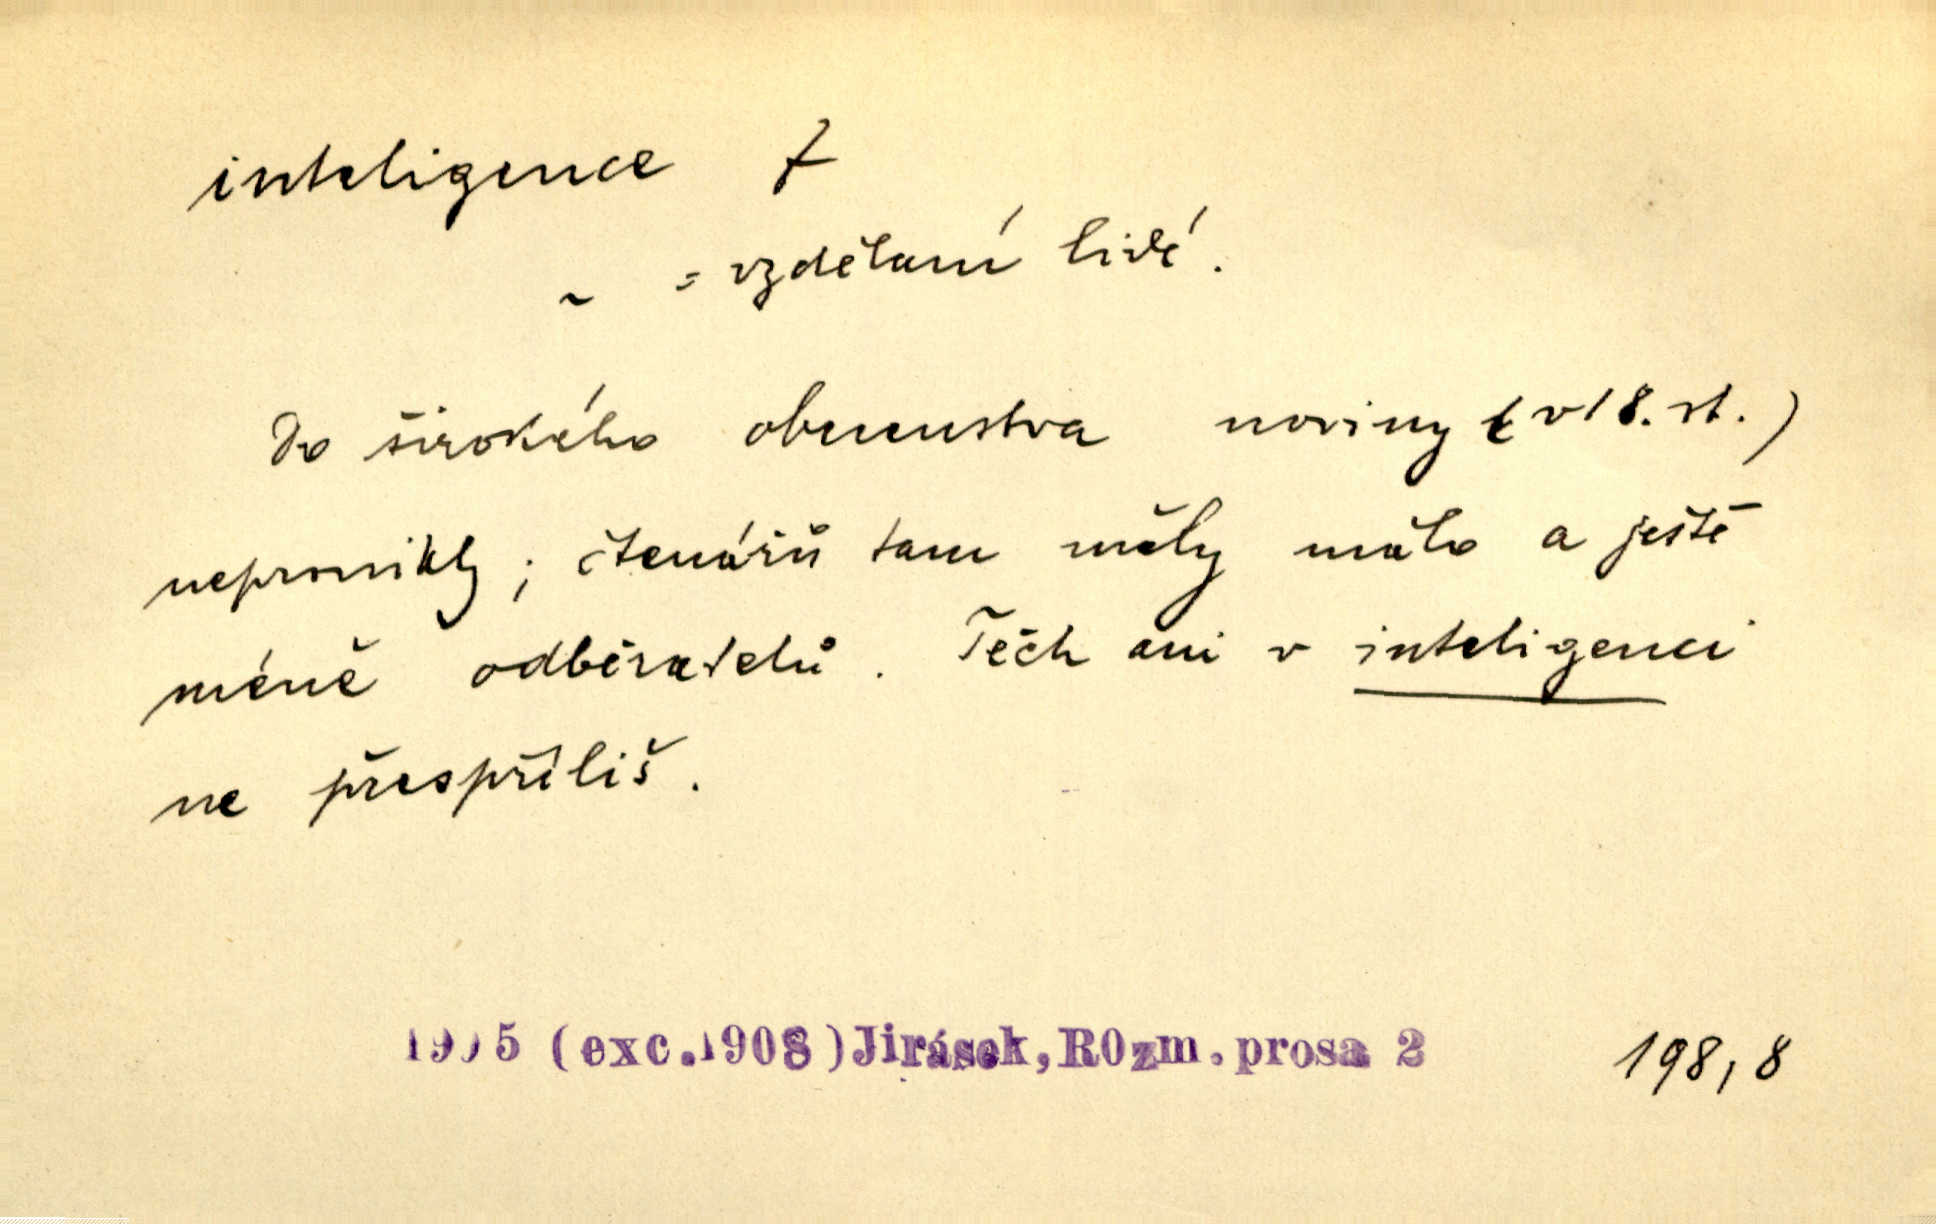 inteligence f
~ = vzdělaní lidé.
Do širokého obecenstva noviny (v 18. st.)
nepronikly; čtenářů tam měly málo a ještě
méně odběratelů. Těch ani v inteligenci
ne přespříliš.
(exc.1908)Jirásek,ROzm.prosa 2 198,8